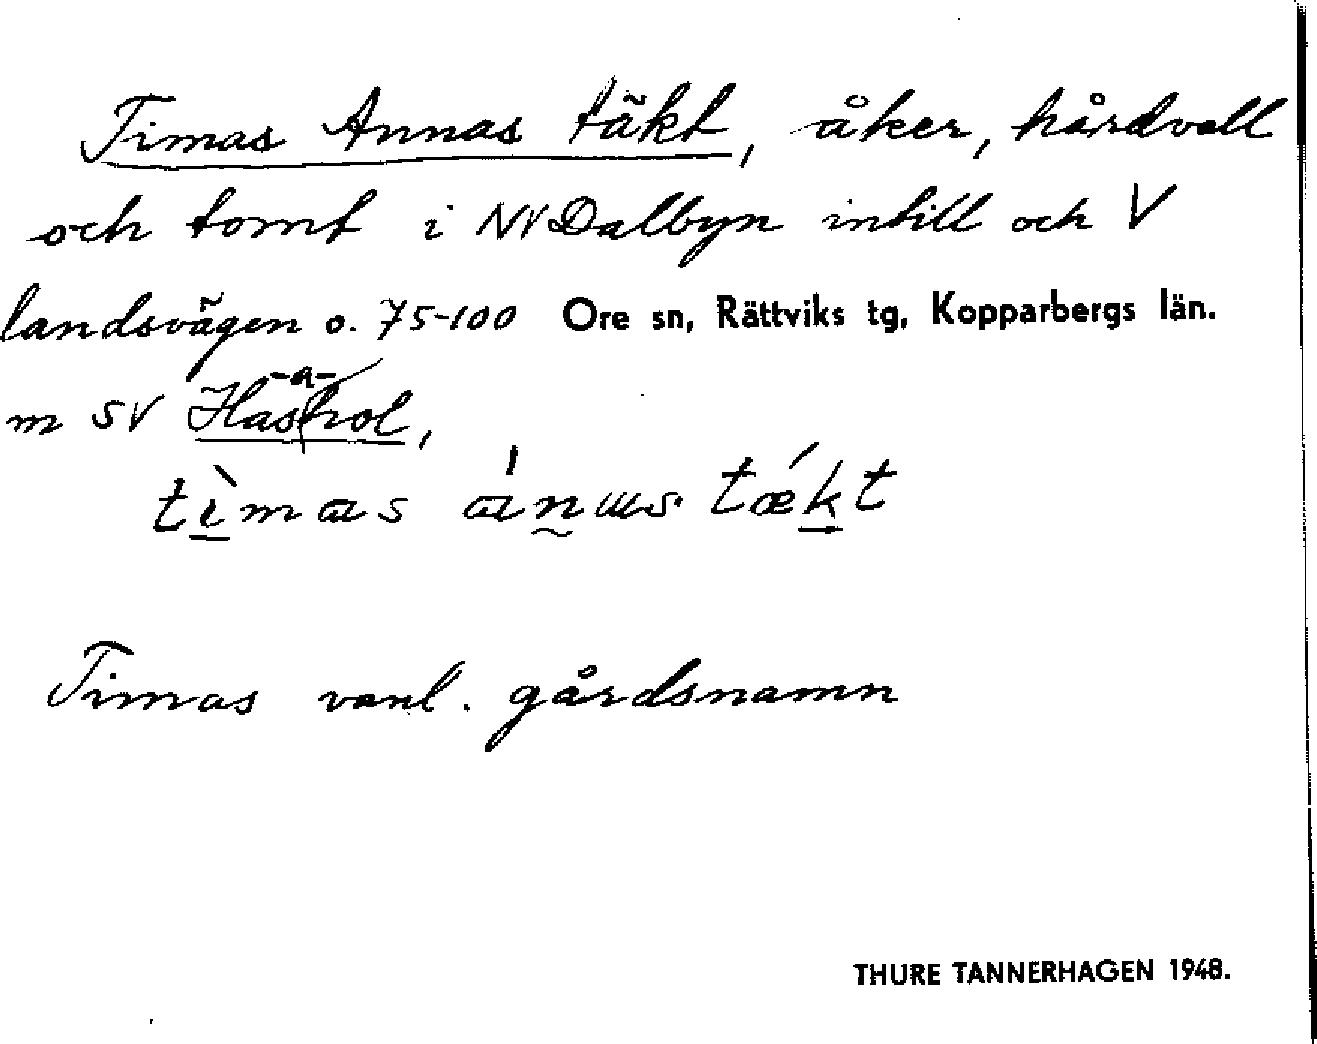 Timas Annas täkt, åker, hårdvall
och tomt i NV Dalbyn intill och V
landsvägen o. 75-100 Ore sn, Rättviks tg, Kopparbergs län.
-a-
m SV Hashol,
tìmas ánus tǽkt
Timas vanl. gårdsnamn
THURE TANNERHAGEN 1948.